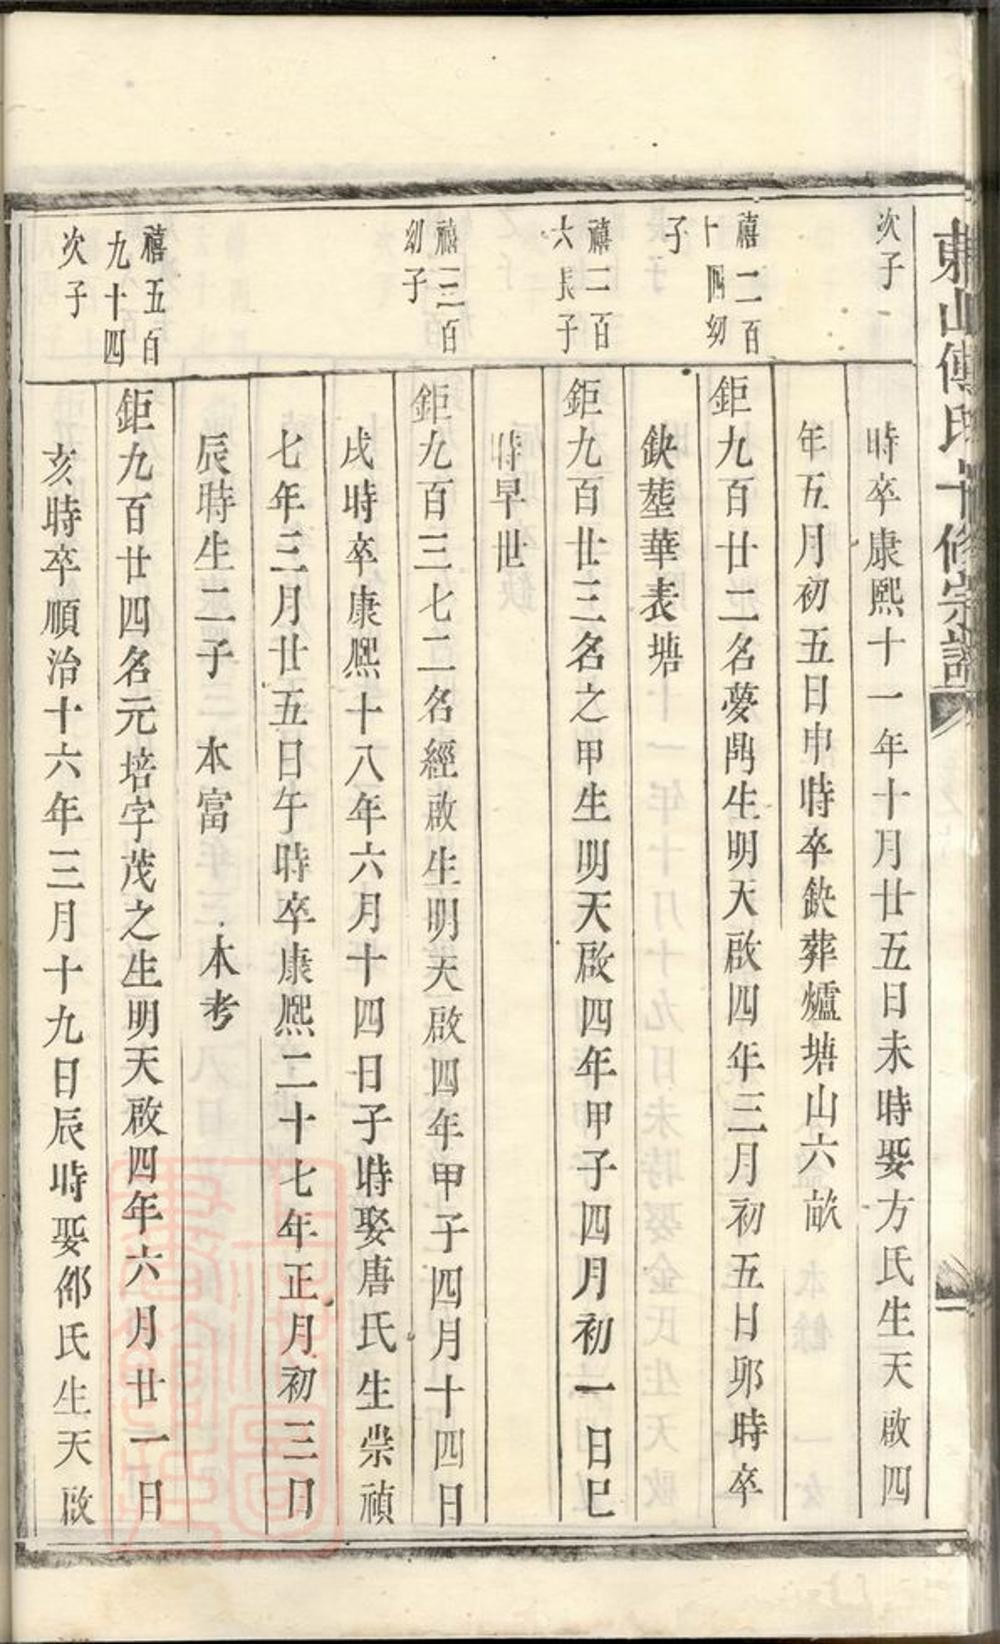 東山傅氏十修宗譜
次子
時卒康熙十一年十月廿五日未時娶方氏生天啟四
年五月初五日申時卒缺葬爐塘山六畝
禧二百
十四幼
子
鉅九百廿二名夢鼎生明天啟四年三月初五日卯時卒
缺塟華表塘
禧二百
六長子
鉅九百廿三名之甲生明天啟四年甲子四月初一日巳
時早世
禧三百
幼子
鉅九百三七二名經啟生明天啟四年甲子四月十四日
戌時卒康熙十八年六月十四日子時娶唐氏生崇禎
七年三月廿五日午時卒康熙二十七年正月初三日
辰時生二子 本富 本考
禧五百
九十四
次子
鉅九百廿四名元培字茂之生明天啟四年六月廿一日
亥時卒順治十六年三月十九日辰時娶邰氏生天啟